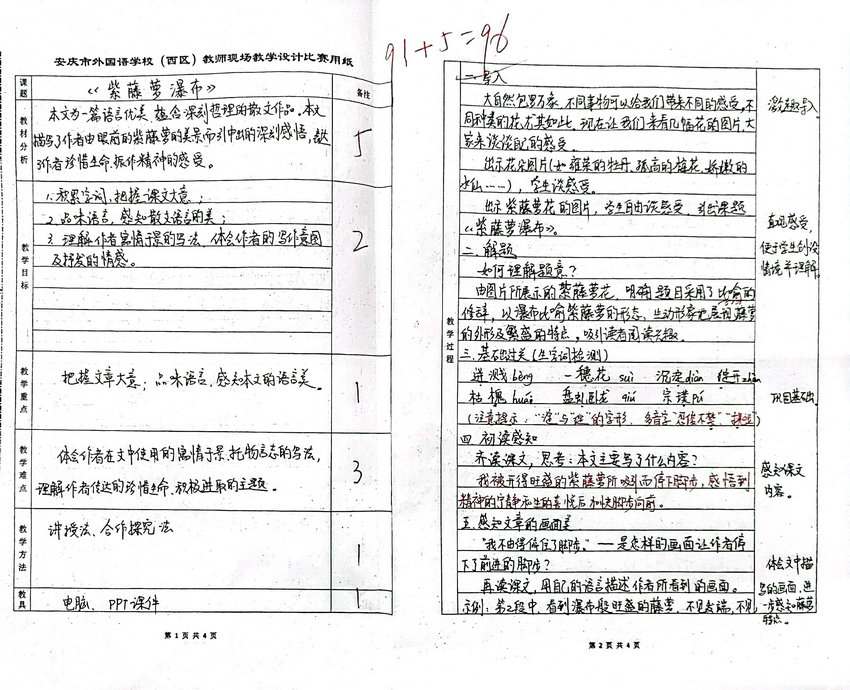 91+5=96
安庆市外国语学校（西区）教师现场教学设计比赛用纸
课题
《紫藤萝瀑布》
备注
教材分析
本文为一篇语言优美、蕴含深刻哲理的散文作品。本文
描写了作者由眼前的紫藤萝的美景而引申出的深刻感悟，表达
了作者珍惜生命、振作精神的感受。
5
教学目标
1. 积累字词，把握课文大意；
2. 品味语言，感知散文语言的美；
3. 理解作者寓情于景的写法，体会作者的写作意图
及抒发的情感。
2
教学重点
把握文章大意；品味语言，感知本文的语言美。
1
教学难点
体会作者在文中使用的寓情于景、托物言志的写法，
理解作者传达的珍惜生命、积极进取的主题。
3
教学方法
讲授法、合作探究法
1
教具
电脑、PPT课件
1
第 1 页 共 4 页
教学过程
一. 导入
大自然包罗万象，不同事物可以给我们带来不同的感受，不
同种类的花尤其如此，现在让我们来看几幅花的图片，大
家来谈谈自己的感受。
出示花朵图片（如雍荣的牡丹、孤高的梅花、娇嫩的
水仙……），学生谈感受。
出示紫藤萝花的图片，学生自由谈感受，引出课题
《紫藤萝瀑布》。
激趣导入。
直观感受，
便于学生创设
情境并理解。
二. 解题
如何理解题意？
由图片所展示的紫藤萝花，明确题目采用了比喻的
修辞，以瀑布比喻紫藤萝的形态，生动形象地展现藤萝
的外形及繁盛的特点，吸引读者阅读兴趣。
三. 基础过关（生字词检测）
迸溅bèng 一穗花 suì 沉淀diàn 绽开zhàn
枯槐huái 盘虬卧龙 qiú 宗璞pú
（注意提示：的字形，多音字“忍俊不禁”）
巩固基础。
四. 初读感知
齐读课文，思考：本文主要写了什么内容？
我被开得旺盛的紫藤萝所吸引而停下脚步，感悟到
精神的宁静和生的喜悦后加快脚步向前。
感知课文
内容。
五. 感知文章的画面美
“我不由得停住了脚步。”——是怎样的画面让作者停
下了前进的脚步？
再读课文，用自己的语言描述作者所看到的画面。
示例：第2段中，看到瀑布般旺盛的藤萝，不见发端，不见
体会文中描
写的画面，进
一步感知藤萝
特点。
第 2 页 共 4 页